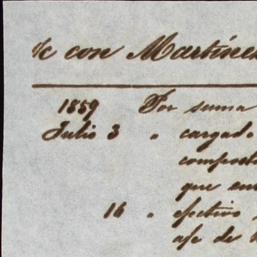 c/c con Martínez
1859 Por suma
Julio 3 " cargado
que en
16 " efectivo
de